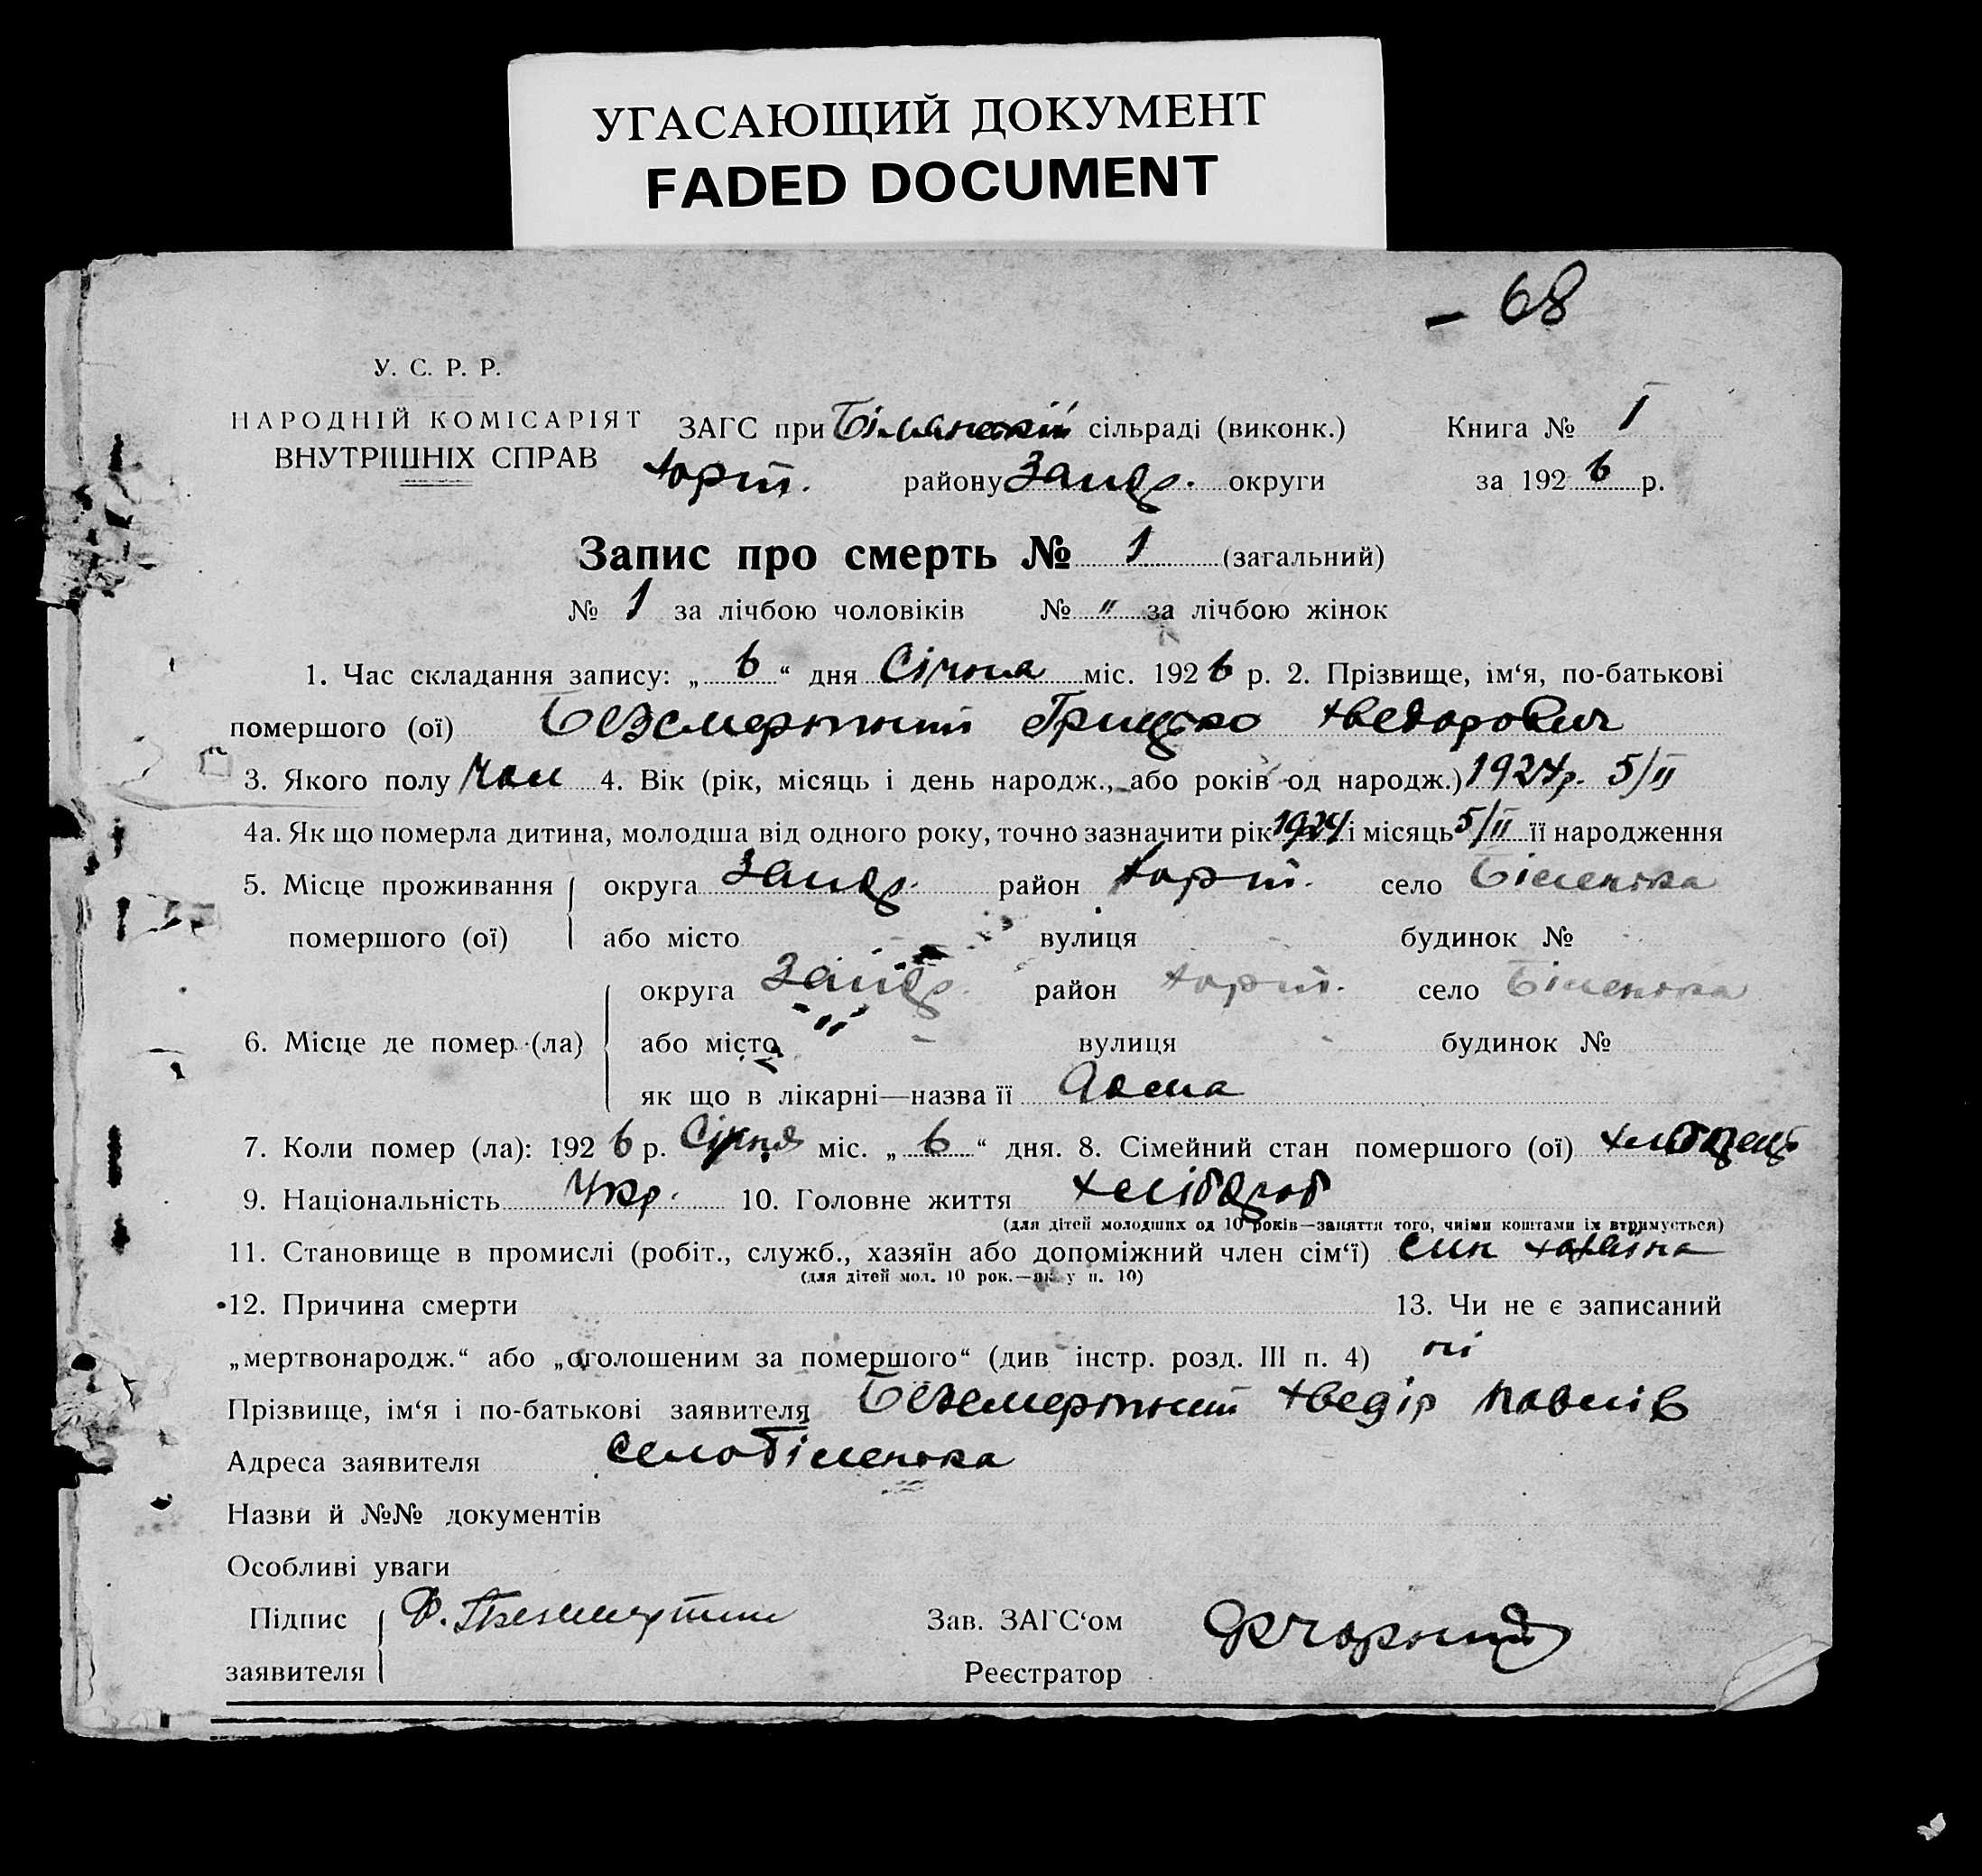 УГАСАЮЩИЙ ДОКУМЕНТ
FADED DOCUMENT
- 68
У. С. Р. Р.
НАРОДНІЙ КОМІСАРІЯТ
ВНУТРІШНІХ СПРАВ
ЗАГС при сільраді (виконк.) Книга № I
Хорт. району Запор. округи за 1926 р.
Запис про смерть № 1 (загальний)
№ 1 за лічбою чоловіків № " за лічбою жінок
1. Час складання запису: „ 6 “ дня Січня міс. 1926 р. 2. Прізвище, ім‘я, по-батькові
помершого (ої) Безсмертний Грицько Хведорович
3. Якого полу Чол 4. Вік (рік, місяць і день народж., або років од народж.) 1924р. 5/II
4а. Як що померла дитина, молодша від одного року, точно зазначити рік 1924 і місяць 5/II її народження
5. Місце проживання округа Запор. район Хорт. село Біленька
помершого (ої) або місто вулиця будинок №
округа Запор. район Хорт. село Біленька
6. Місце де помер (ла) або місто вулиця будинок №
як що в лікарні—назва її дома
7. Коли помер (ла): 1926 р. Січня міс. „ 6 “ дня. 8. Сімейний стан помершого (ої)
9. Національність Укр. 10. Головне життя хлібороб
(для дітей молодших од 10 років—заняття того, чиїми коштами їх втримується)
11. Становище в промислі (робіт., служб., хазяїн або допоміжний член сім‘ї) син хазяїна
(для дітей мол. 10 рок.—як у п. 10)
12. Причина смерти 13. Чи не є записаний
„мертвонародж.“ або „оголошеним за помершого“ (див інстр. розд. III п. 4) ні
Прізвище, ім‘я і по-батькові заявителя Безсмертний Хведір Павлів
Адреса заявителя село Біленька
Назви й №№ документів
Особливі уваги
Підпис Ф. Безсмертний Зав. ЗАГС‘ом
заявителя Реєстратор